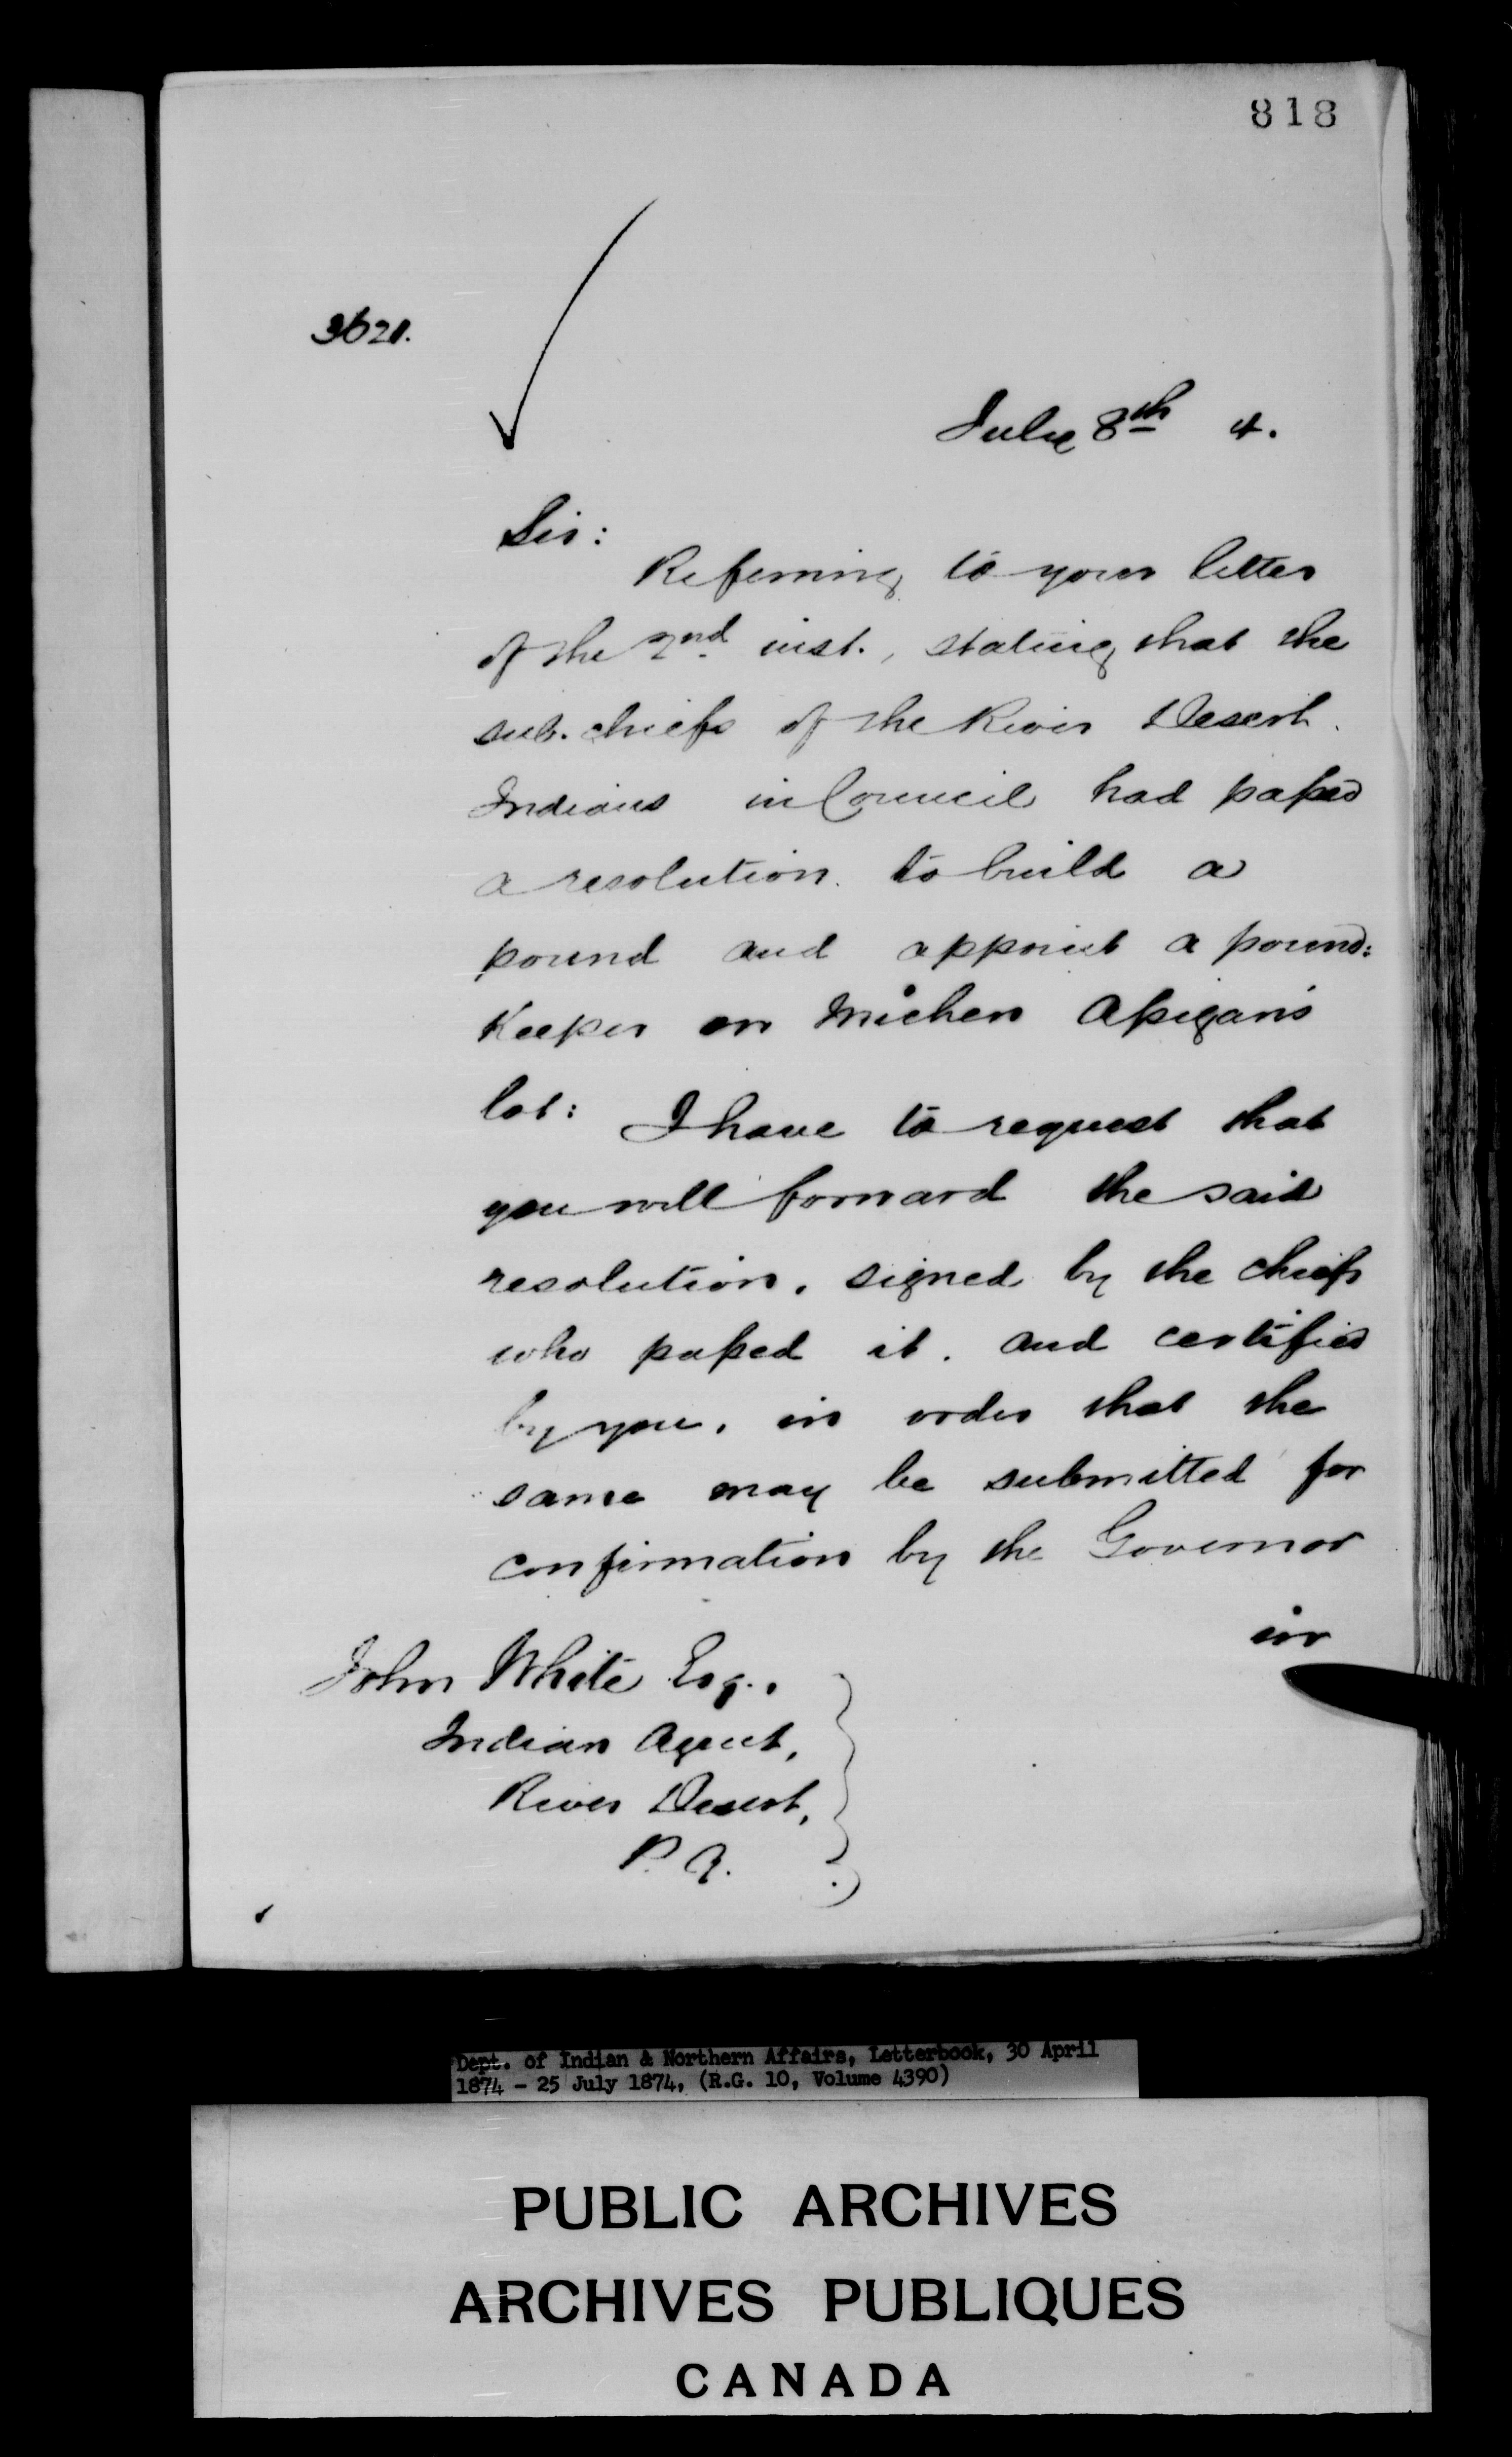 818
3621.
July 8th 4.
Sir:
Referring to your letter
of the 2nd inst., stating that the
sub. chiefs of the River Desert
Indians in Council had passed
a resolution to build a
pound and appoint a pound:
Keeper on Michen Apigan's
lot: I have to request that
you will forward the said
resolution, signed by the chiefs
who passed it. and certified
by you, in order that the
same may be submitted for
confirmation by the Governor
in
John White Esq.,
Indian Agent,
River Desert,
P.Q.
Dept. of Indian & Northern Affairs, Letterbook, 30 April
1874 - 25 July 1874, (R.G. 10, Volume 4390)
PUBLIC ARCHIVES
ARCHIVES PUBLIQUES
CANADA